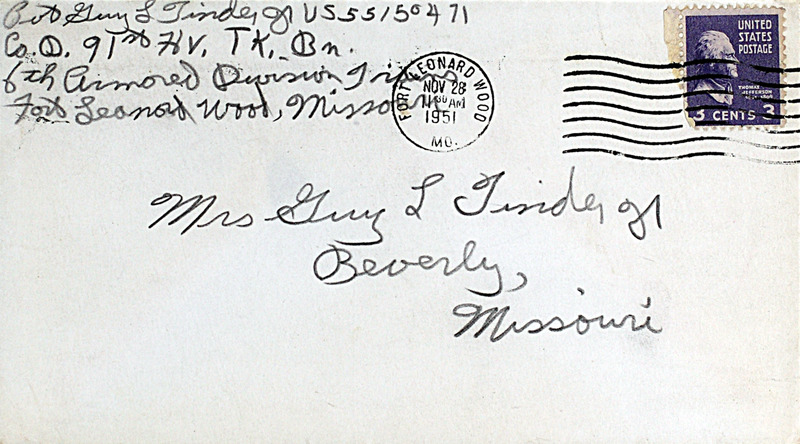 Pvt Guy L Tinder Jr US55150471
Co. D. 91st HV, TK, Bn.
6th Armored Division Trains
Fort Leonard Wood, Missouri
FORT LEONARD WOOD
NOV 28
11 30 AM
1951
MO.
UNITED
STATES
POSTAGE
THOMAS
JEFFERSON
3 CENTS 3
Mrs Guy L Tinder Jr
Beverly,
Missouri